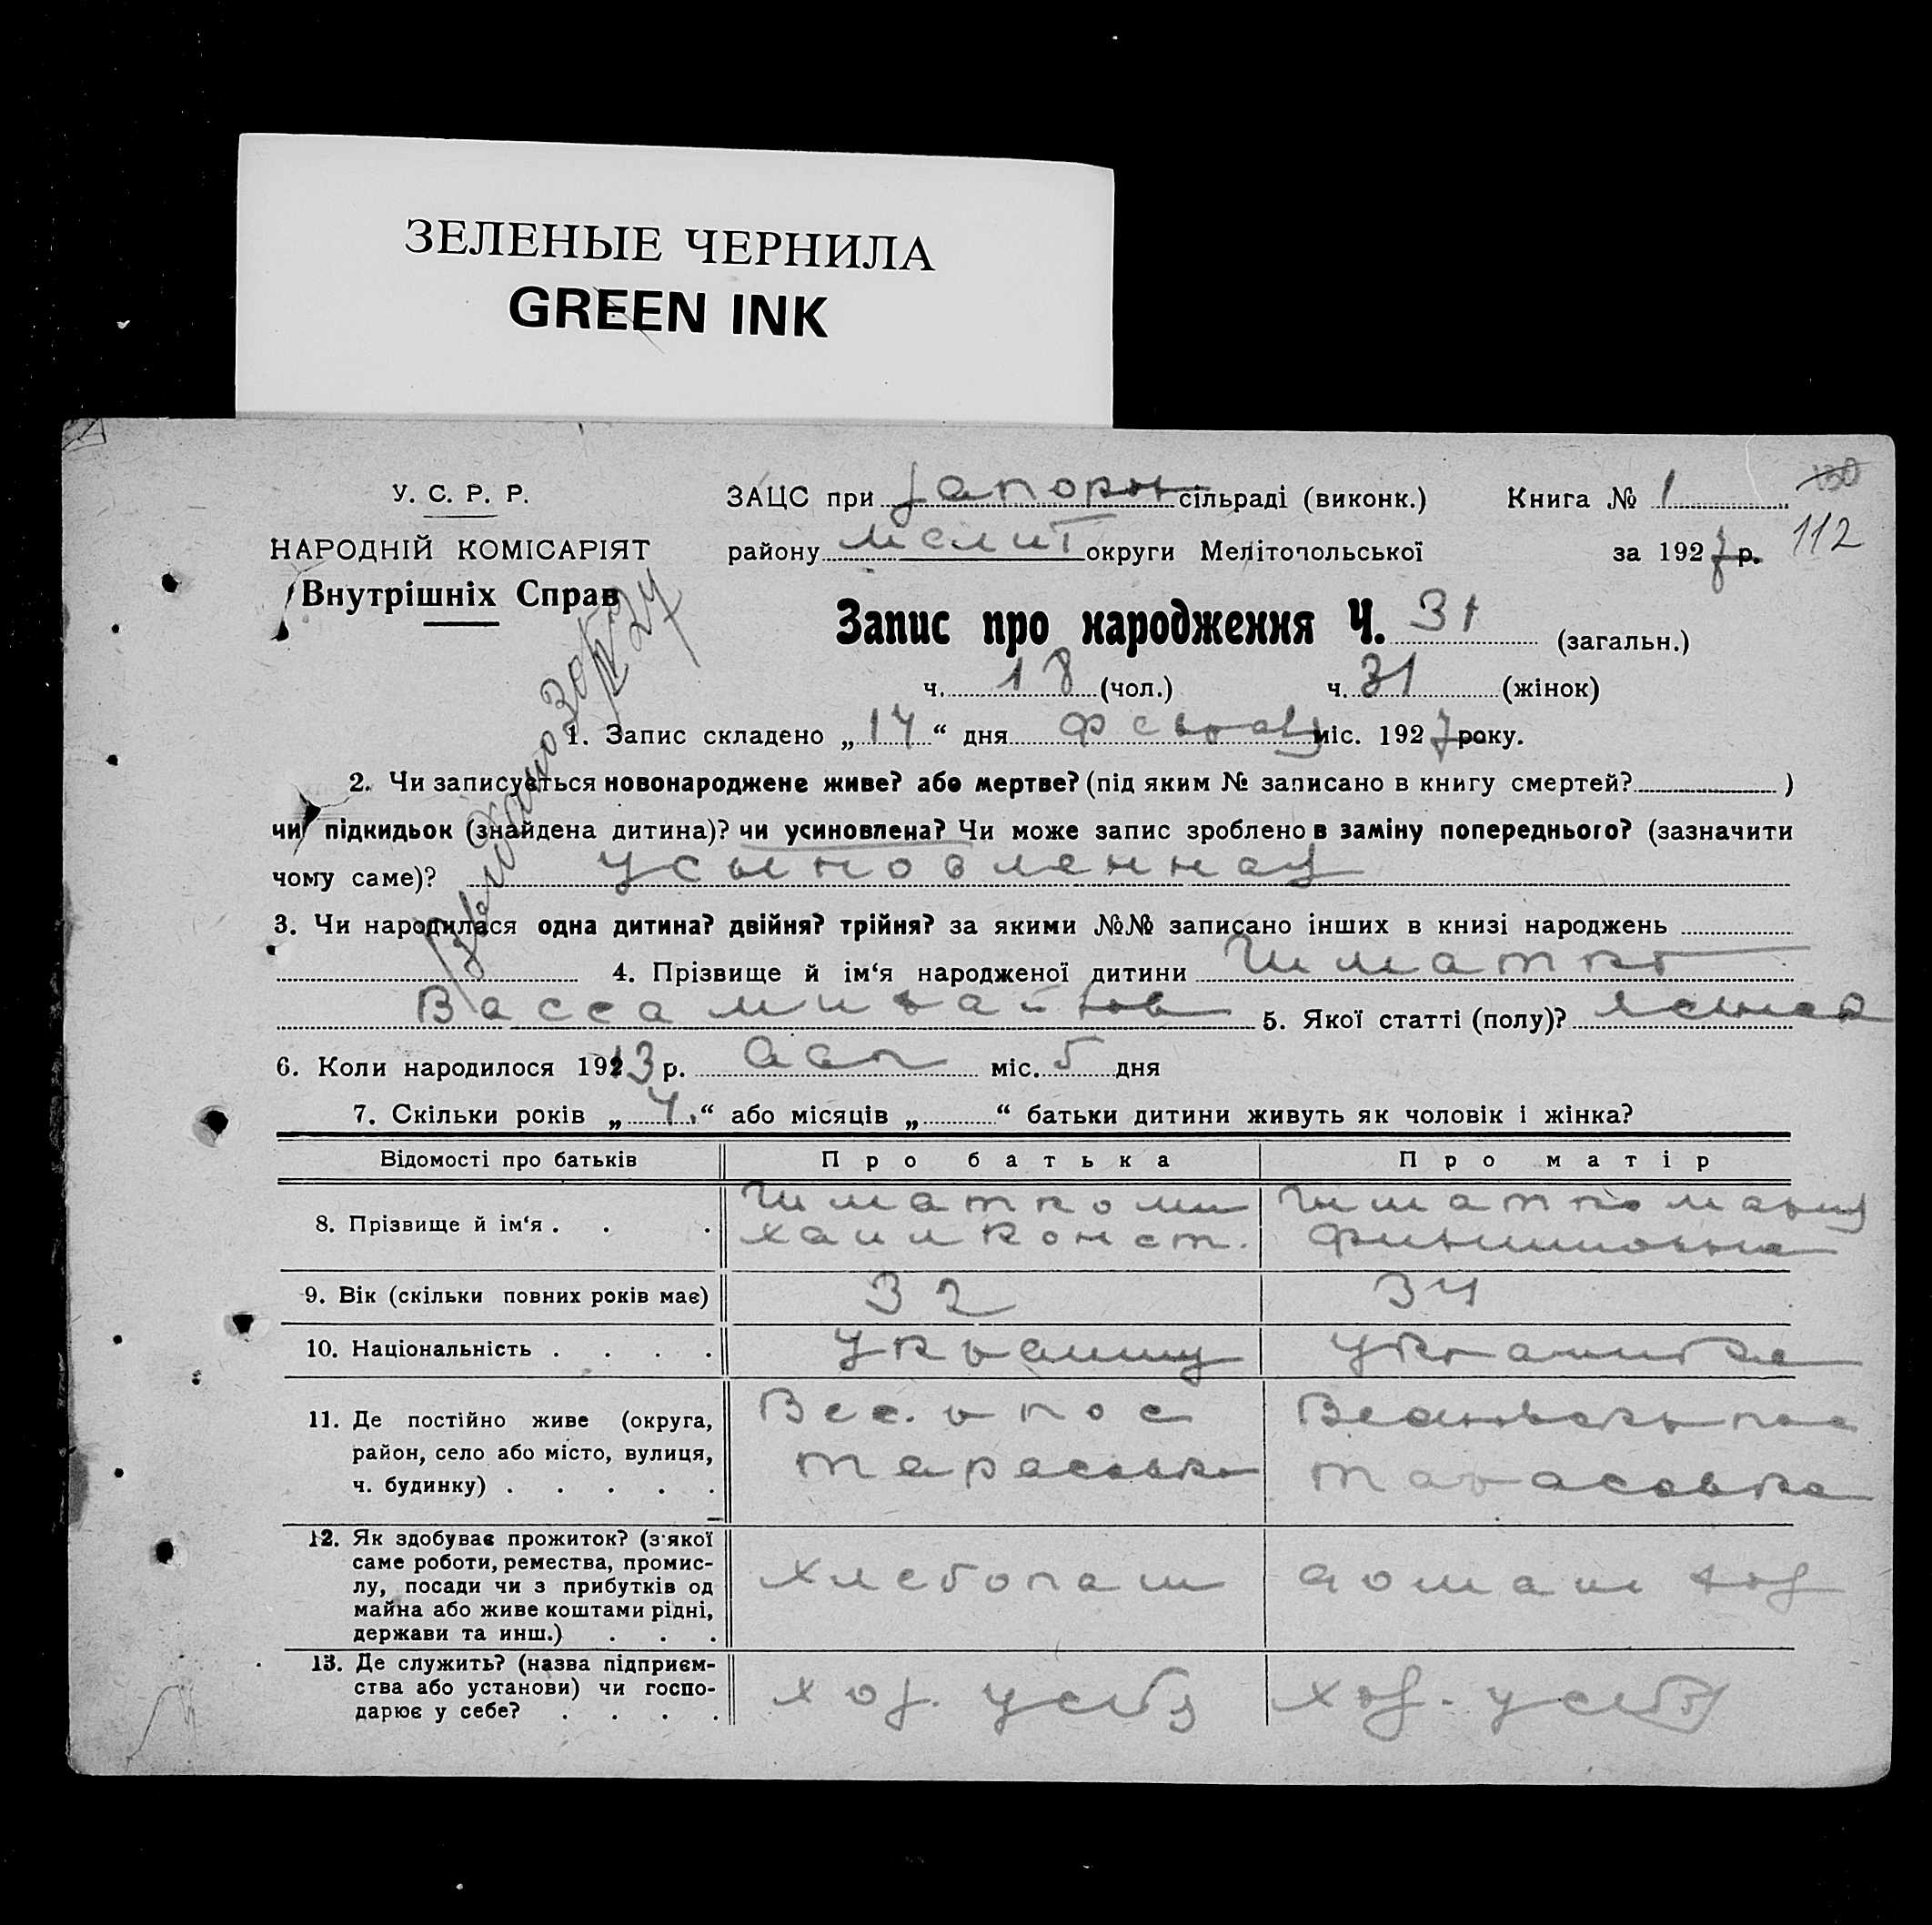 ЗЕЛЕНЫЕ ЧЕРНИЛА
GREEN INK
У. С. Р. Р.
НАРОДНІЙ КОМІСАРІЯТ
Внутрішніх Справ
ЗАЦС при Запорож сільраді (виконк.) Книга № 1
району Мелит округи Мелітопольської за 1927 р. 112
Запис про народження Ч. 31 (загальн.)
ч. 18 (чол.) ч. 31 (жінок)
1. Запис складено „14“ дня міс. 1927 року.
2. Чи записується новонароджене живе? або мертве? (під яким № записано в книгу смертей? )
чи підкидьок (знайдена дитина)? чи усиновлена? Чи може запис зроблено в заміну попереднього? (зазначити
чому саме)? усыновленная
3. Чи народилася одна дитина? двійня? трійня? за якими №№ записано інших в книзі народжень
4. Прізвище й ім‘я народженої дитини Шматко
Васса Михайлов 5. Якої статті (полу)? женск
6. Коли народилося 1913 р. міс. 5 дня
7. Скільки років „4.“ або місяців „ “ батьки дитини живуть як чоловік і жінка?
Відомості про батьків Про батька Про матір
8. Прізвище й ім‘я . . . Шматко Ми Шматко Мария
хаил Конст. 
9. Вік (скільки повних років має) 32 34
10. Національність . . . . украинц украинка
11. Де постійно живе (округа,
район, село або місто, вулиця,
ч. будинку) . . . . .
Тарасовка Тарасовка
12. Як здобуває прожиток? (з'якої
саме роботи, ремества, промис-
лу, посади чи з прибутків од
майна або живе коштами рідні,
держави та инш.) . . .
хлебопаш домаш хоз
13. Де служить? (назва підприєм-
ства або установи) чи госпо-
дарює у себе? . . . .
хоз. у себя хоз. у себя